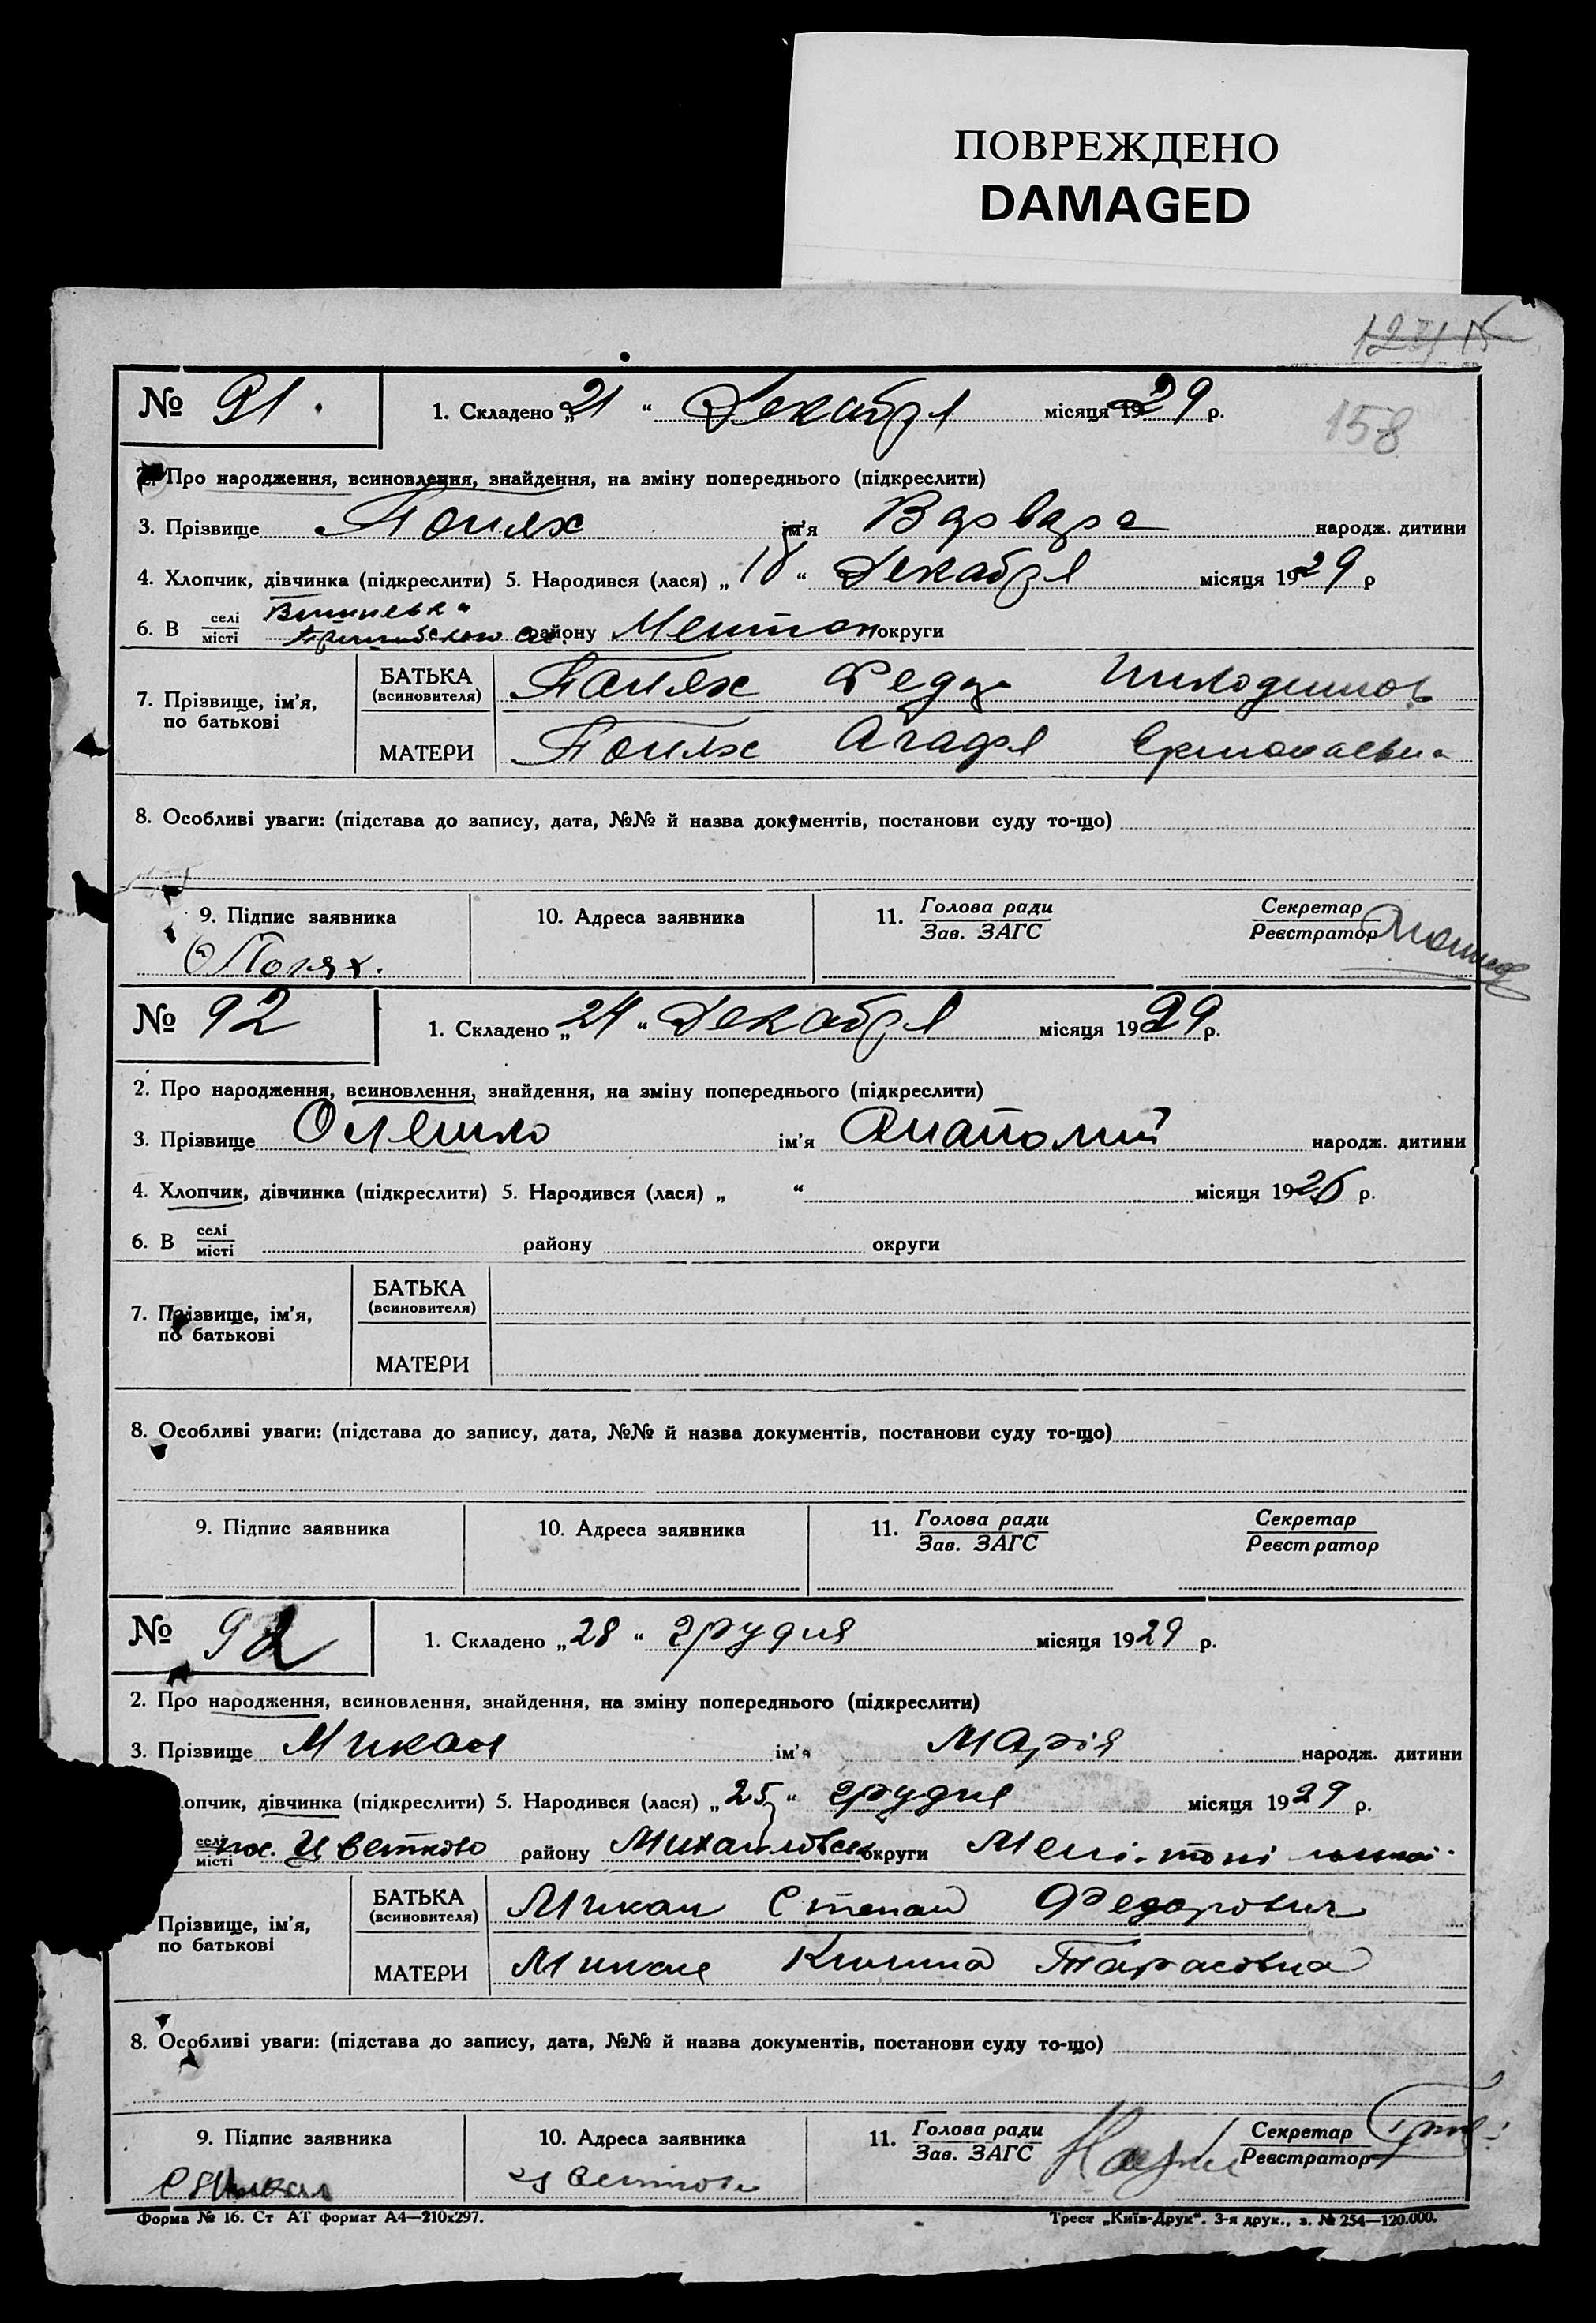 ПОВРЕЖДЕНО
DAMAGED
158
№ 91. 1. Складено „21“ Декабря місяця 1929 р.
2. Про народження, всиновлення, знайдення, на зміну попереднього (підкреслити)
3. Прізвище ім'я Варвара народж. дитини
4. Хлопчик, дівчинка (підкреслити) 5. Народився (лася) „18“ Декабря місяця 1929 р
6. В селі/місті району округи
7. Прізвище, ім'я, по батькові
БАТЬКА (всиновителя) Федор
МАТЕРИ Агафя
8. Особливі уваги: (підстава до запису, дата, №№ й назва документів, постанови суду то-що)
9. Підпис заявника 10. Адреса заявника 11. Голова ради/Зав. ЗАГС Секретар/Реєстратор
№ 92 1. Складено „24“ Декабря місяця 1929 р.
2. Про народження, всиновлення, знайдення, на зміну попереднього (підкреслити)
3. Прізвище Олешко ім'я Анатолий народж. дитини
4. Хлопчик, дівчинка (підкреслити) 5. Народився (лася) „ “ місяця 1926 р.
6. В селі/місті району округи
7. Прізвище, ім'я, по батькові
БАТЬКА (всиновителя)
МАТЕРИ
8. Особливі уваги: (підстава до запису, дата, №№ й назва документів, постанови суду то-що)
9. Підпис заявника 10. Адреса заявника 11. Голова ради/Зав. ЗАГС Секретар/Реєстратор
№ 92 1. Складено „28“ грудня місяця 1929 р.
2. Про народження, всиновлення, знайдення, на зміну попереднього (підкреслити)
3. Прізвище Микал ім'я Марія народж. дитини
опчик, дівчинка (підкреслити) 5. Народився (лася) „25“ грудня місяця 1929 р.
селі/місті Цветково району Михайловськ округи
Прізвище, ім'я, по батькові
БАТЬКА (всиновителя) Микал Степан Федорович
МАТЕРИ Микал Килина Тарасовна
8. Особливі уваги: (підстава до запису, дата, №№ й назва документів, постанови суду то-що)
9. Підпис заявника 10. Адреса заявника 11. Голова ради/Зав. ЗАГС Секретар/Реєстратор
Форма № 16. Ст АТ формат А4—210х297. Трест „Київ-Друк“. 3-я друк., з. № 254—120.000.